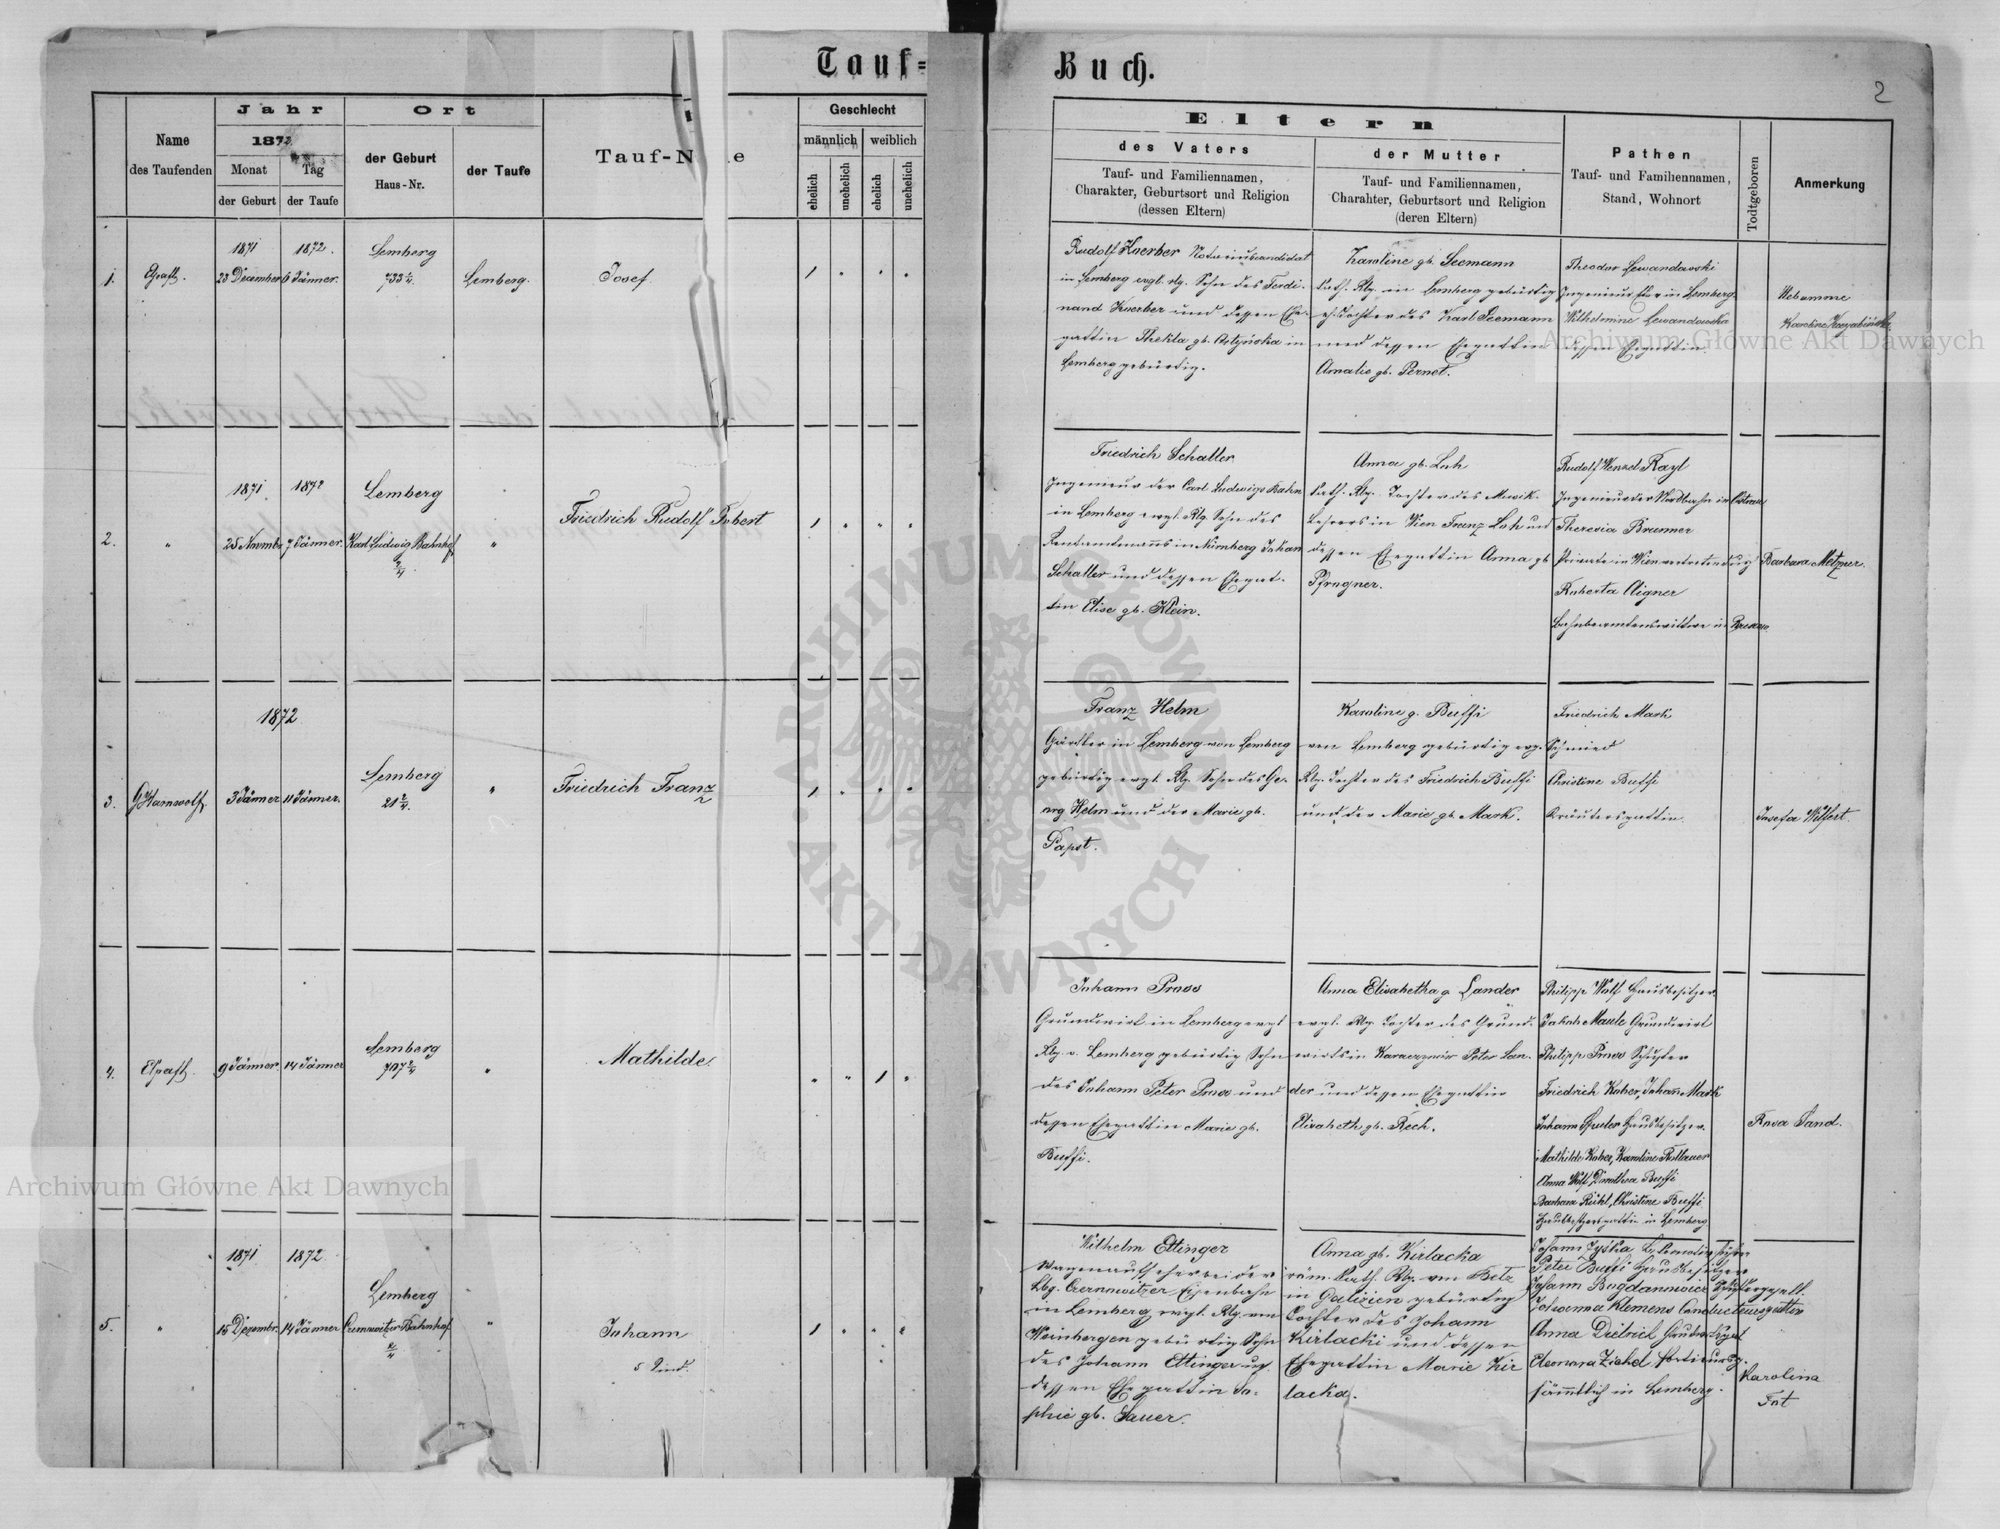 Tauf=
Buch.
2
Name
des Taufenden
Jahr
187
Monat
der Geburt
Tag
der Taufe
Ort
der Geburt
Haus-Nr.
der Taufe
Tauf-N e
Geschlecht
männlich weiblich
ehelich
unehelich
ehelich
unehelich
Eltern
des Vaters
Tauf- und Familiennamen,
Charakter, Geburtsort und Religion
(dessen Eltern)
der Mutter
Tauf- und Familiennamen,
Charahter, Geburtsort und Religion
(deren Eltern)
Pathen
Tauf- und Familiennamen,
Stand, Wohnort
Todtgeboren
Anmerkung
1.
1871 1872.
23 December 6 Jänner.
Lemberg
733 2/4
Lemberg.
Josef
Rudolf Koerber
in Lemberg evgl. rlg. Sohn des Ferdi-
nand Koerber und dessen Ehe-
gattin Thekla gb. in
Lemberg gebürtig.
Karoline gb. Seemann
kath. Rlg. in Lemberg gebürtig
eh. Tochter des Karl Seemann
und dessen Ehegattin
Amalie gb. Pernet.
Theodor Lewandowski
Ingenieur in Lemberg
Wilhelmine Lewandowska
dessen Ehegattin.
Hebamme
Karoline
2.
"
1871 1872
25 Novmbr 7 Jänner.
Lemberg
Karl Ludwig Bahnhof
2/4
"
Friedrich Rudolf Robert
Friedrich Schaller
Ingenieur der Carl Ludwigs Bahn
in Lemberg evgl. Rlg. Sohn des
Rentamtmanns in Nürnberg Johan
Schaller und dessen Ehegat-
tin Elise gb. Klein.
Anna gb. Loh
kath. Rlg. Tochter des Musik-
Lehrers in Wien Franz Loh und
dessen Ehegattin Anna gb
Pfrogner.
Rudolf Wenzel Rayl
Ingenieur der Nordbahn in Ostrau
Theresia Brunner
Private in Wien vertretend
Roberta Aigner
Bahnbeamtenswittwe in
Barbara Metzner.
3.
G Harnwolf
1872
3 Jänner 11 Jänner.
Lemberg
21 2/4.
"
Friedrich Franz
Franz Helm
Gärtler in Lemberg von Lemberg
gebürtig evgl. Rlg. Sohn des Ge-
org Helm und der Marie gb.
Papst.
Karoline g. Buffi
von Lemberg gebürtig evg.
Rlg. Tochter des Friedrich Buffi
und der Marie gb. Mark.
Friedrich Mark
Schmied
Christine Buffi
Josefa Wilfert.
4.
9 Jänner. 14 Jänner
Lemberg
707 2/4
"
Mathilde.
Johann Proos
Grundwirt in Lemberg evgl
Rlg. v. Lemberg gebürtig Sohn
des Johann Peter Proos und
dessen Ehegattin Marie gb.
Buffi.
Anna Elisabetha g. Lander
evgl. Rlg. Tochter des Grund-
wirts in Peter Lan-
der und dessen Ehegattin
Elisabeth gb. Rech.
Philipp Wolf Hausbesitzer,
Jakob Maule Grundwirt
Philipp Proos Schuster
Friedrich Kober, Johann Mark
Johann Spuler Hausbesitzer.
Mathilde Kober, Karoline Rollauer
Anna Wolf, Dorothea Buffi
Barbara Rühl, Christine Buffi
Hausbesitzersgattin in Lemberg
Rosa Sand.
5.
"
1871 1872.
15 Dezembr. 14 Jänner
Lemberg
Czernowitzer Bahnhof
2/4
"
Johann
5 Kind.
Wilhelm Ettinger
Wagenaufseher bei der
Lbg. Czernowitzer Eisenbahn
in Lemberg, evgl. Rlg. von
Weinbergen gebürtig Sohn
des Johann Ettinger u.
dessen Ehegattin So-
phie gb. Sauer.
Anna gb. Kirlacka
röm. kath. Rlg. von Belz
in Galizien gebürtig
Tochter des Johann
Kirlacki und dessen
Ehegattin Marie Kir
lacka.
Johann Zyska
Peter Buffi Hausbesitzer
Johann Bogdanowicz
Johanna Klemens Conducteursgattin
Anna Dietrich
Eleonora Ziebel
sämmtlich in Lemberg.
Karolina
Fot
Archiwum Główne Akt Dawnych
Archiwum Główne Akt Dawnych
ARCHIWUM GŁÓWNE
AKT DAWNYCH